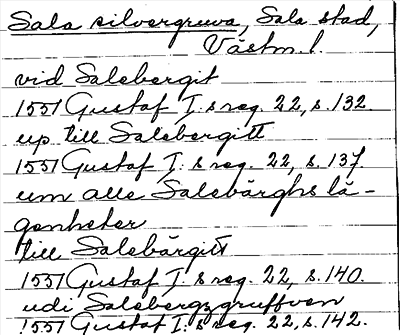 Sala silvergruva, Sala stad,
Västm. l.
vid Salebergit
1551 Gustaf I: s reg. 22, s. 132.
up till Salebergitt
1551 Gustaf I: s reg. 22, s. 137.
um alle Salebärghs lä-
genheter
till Salebärgitt
1551 Gustaf I: s reg. 22, s. 140.
udi Salebergzgruffven
1551 Gustaf I: s reg. 22, s. 142.